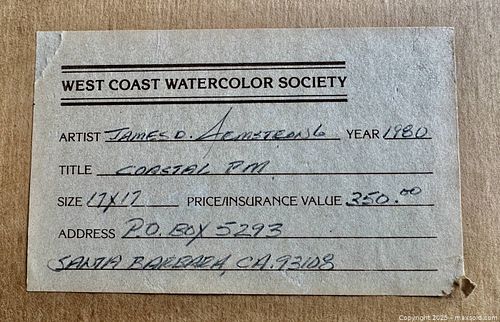 WEST COAST WATERCOLOR SOCIETY
ARTIST JAMES D. ARMSTRONG YEAR 1980
TITLE COASTAL P.M.
SIZE 17X17 PRICE/INSURANCE VALUE 350.00
ADDRESS P.O. BOX 5293
SANTA BARBARA, CA. 93108
Copyright 2025 - maxsold.com